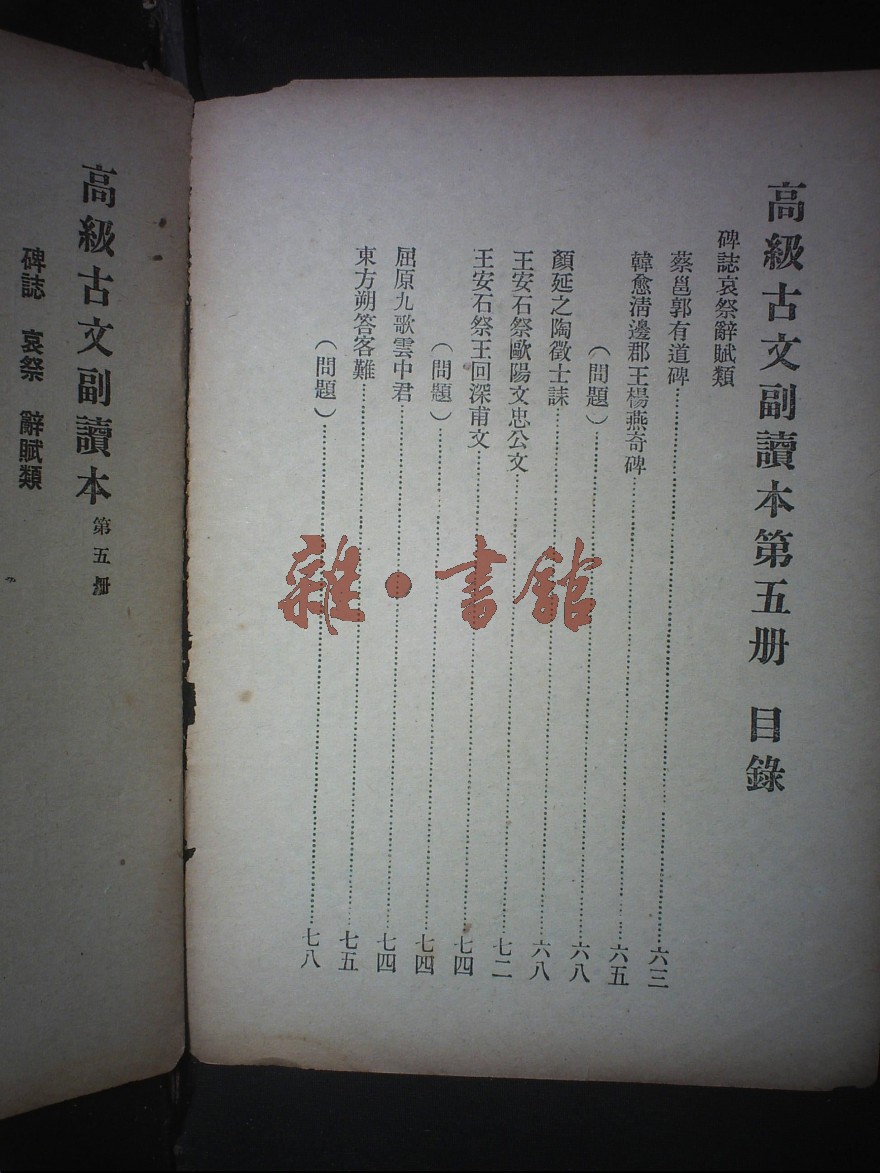 高級古文副讀本第五册 目錄
碑誌哀祭辭賦類
蔡邕郭有道碑……六三
韓愈清邊郡王楊燕奇碑……六五
（問題）……六八
顏延之陶徵士誄……六八
王安石祭歐陽文忠公文……七二
王安石祭王回深甫文……七四
（問題）……七四
屈原九歌雲中君……七四
東方朔答客難……七五
（問題）……七八
高級古文副讀本 第五册
碑誌 哀祭 辭賦類
雜·書館